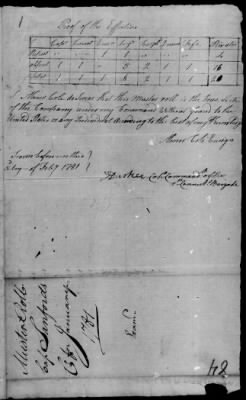 1
Proof of the Effectives
Capt Lieut Ensn Sergt Corpl Drum Fife Privates
Present 1 1 2
Absent 1 1 1 8 2 1 1 16
Total 1 1 1 8 2 1 20
I Abner Cole do Swear that this Muster roll is the true State
of the Company under my Command without fraud to the
United States or any Individual According to the best of my Knowledge
Abner Cole Ensign
Sworn before me this
Day of Feby 1781
Colo Command
Connect Brigade
Muster Roll
Capt Sanfords
Co for January
1781
Exam
42